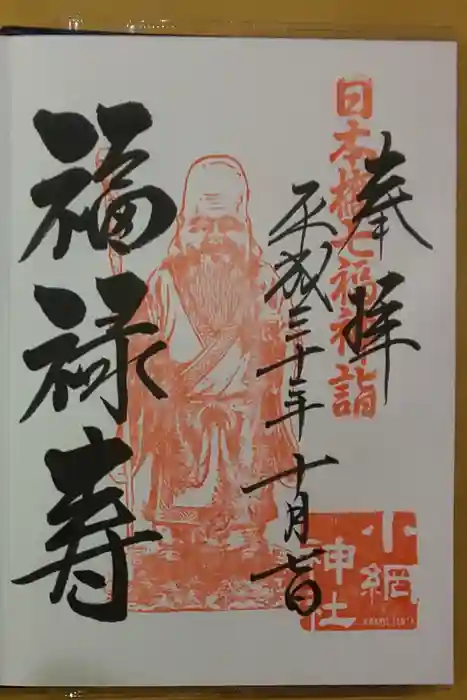 日本橋七福神詣
奉拝
平成三十年十月七日
福禄寿
小網
神社